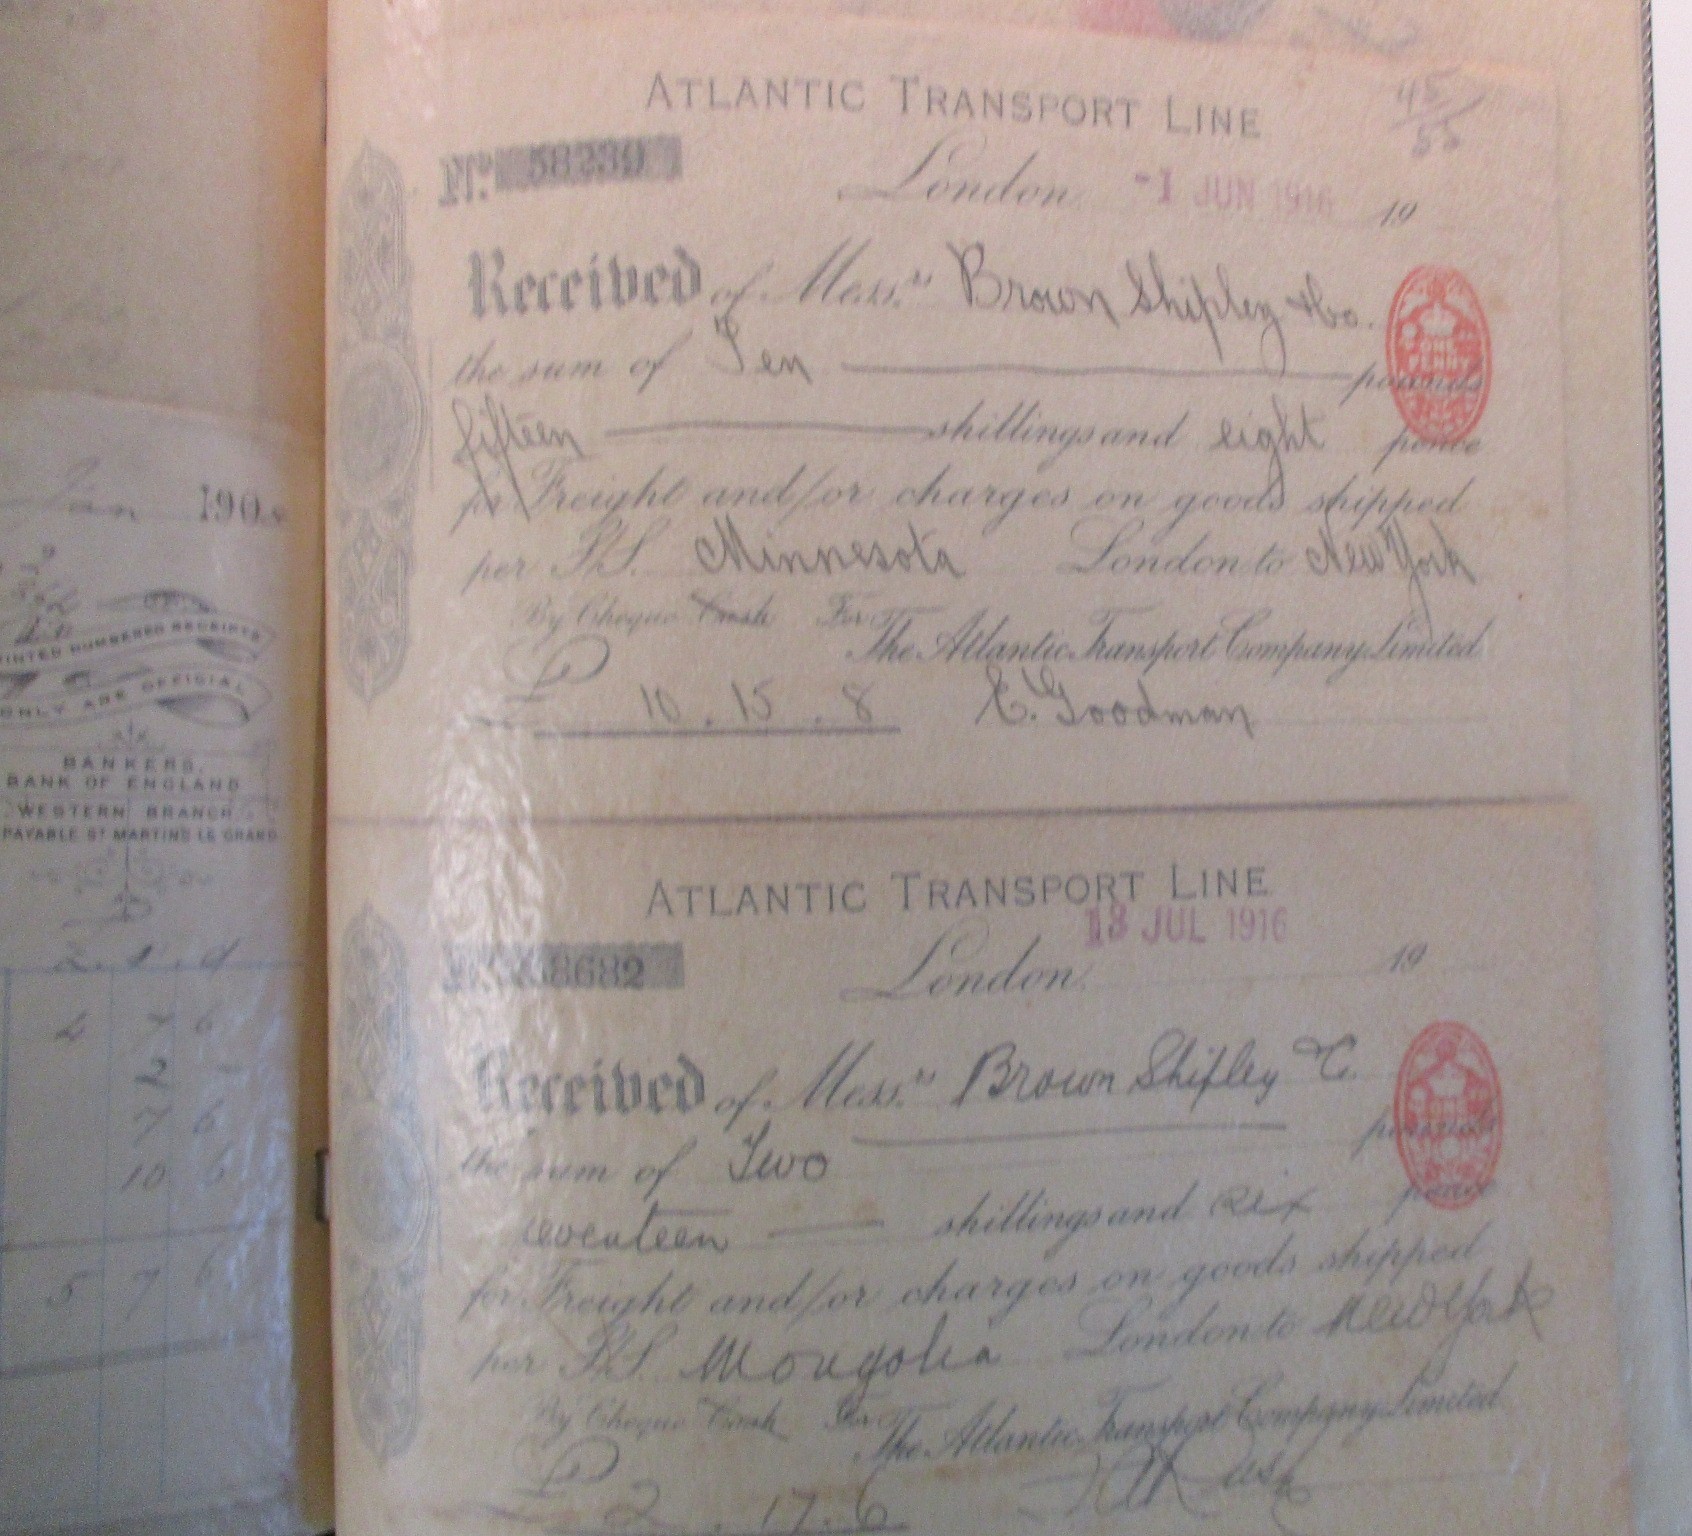 ATLANTIC TRANSPORT LINE
45/55
No. 58239
London -1 JUN 1916 19
Received of Messrs Brown Shipley & Co.
the sum of Ten pounds
fifteen shillings and eight pence
for Freight and/or charges on goods shipped
per S.S. Minnesota London to New York
By Cheque Cash For
The Atlantic Transport Company Limited
£ 10. 15. 8 E. Goodman
ATLANTIC TRANSPORT LINE
13 JUL 1916
58682
London 19
Received of Messrs Brown Shipley & C.
the sum of Two pounds
seventeen shillings and six pence
for Freight and/or charges on goods shipped
per S.S. Mongolia London to New York
By Cheque Cash For
The Atlantic Transport Company Limited
£ 2. 17. 6
Jan 190
PRINTED NUMBERED RECEIPTS
ONLY ARE OFFICIAL
BANKERS,
BANK OF ENGLAND
WESTERN BRANCH
PAYABLE ST MARTINS LE GRAND
£ s d
4 7 6
2 -
7 6
10 6
5 7 6